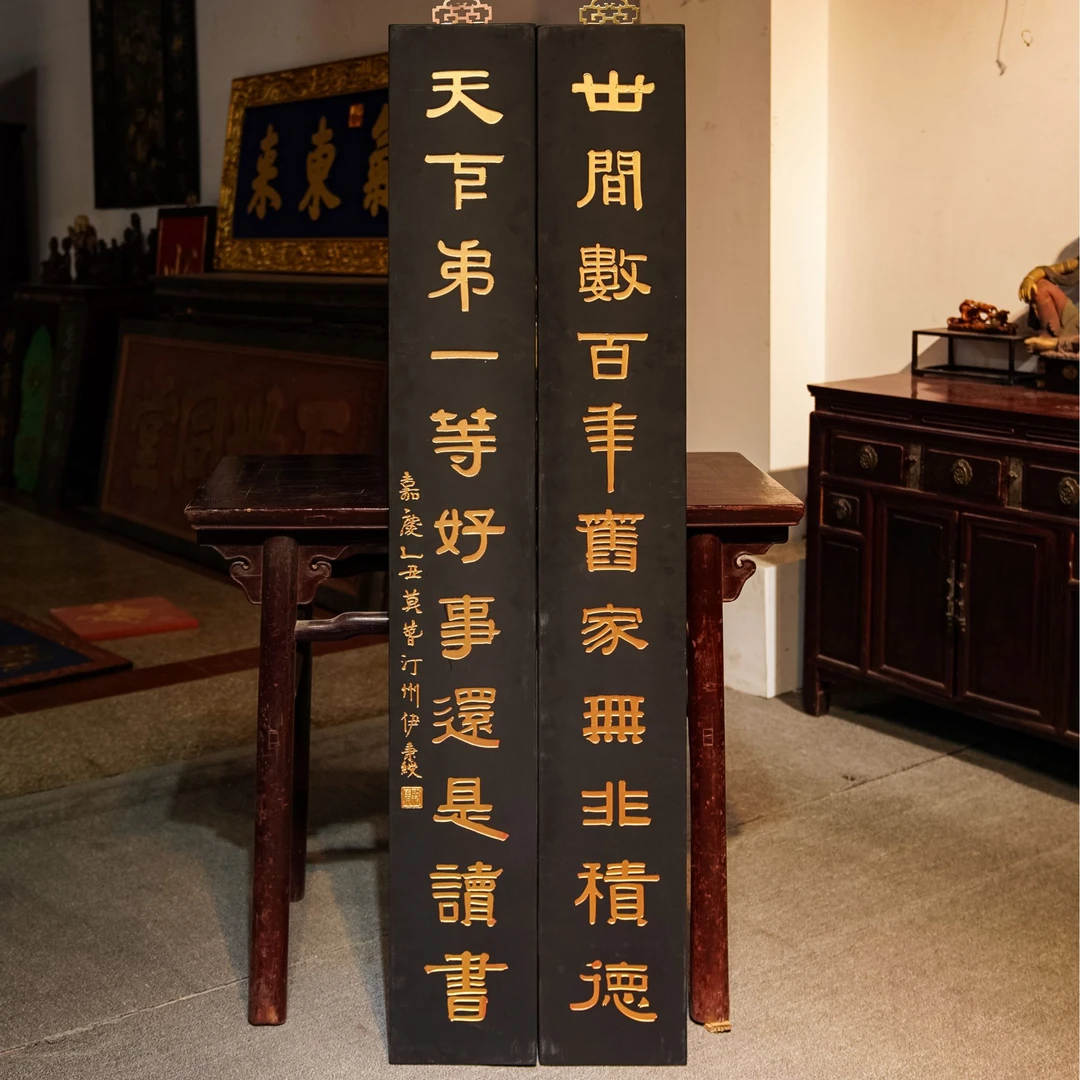 世間數百年舊家無非積德
天下弟一等好事還是讀書
嘉慶乙丑莫萅汀州伊秉綬
氣東来